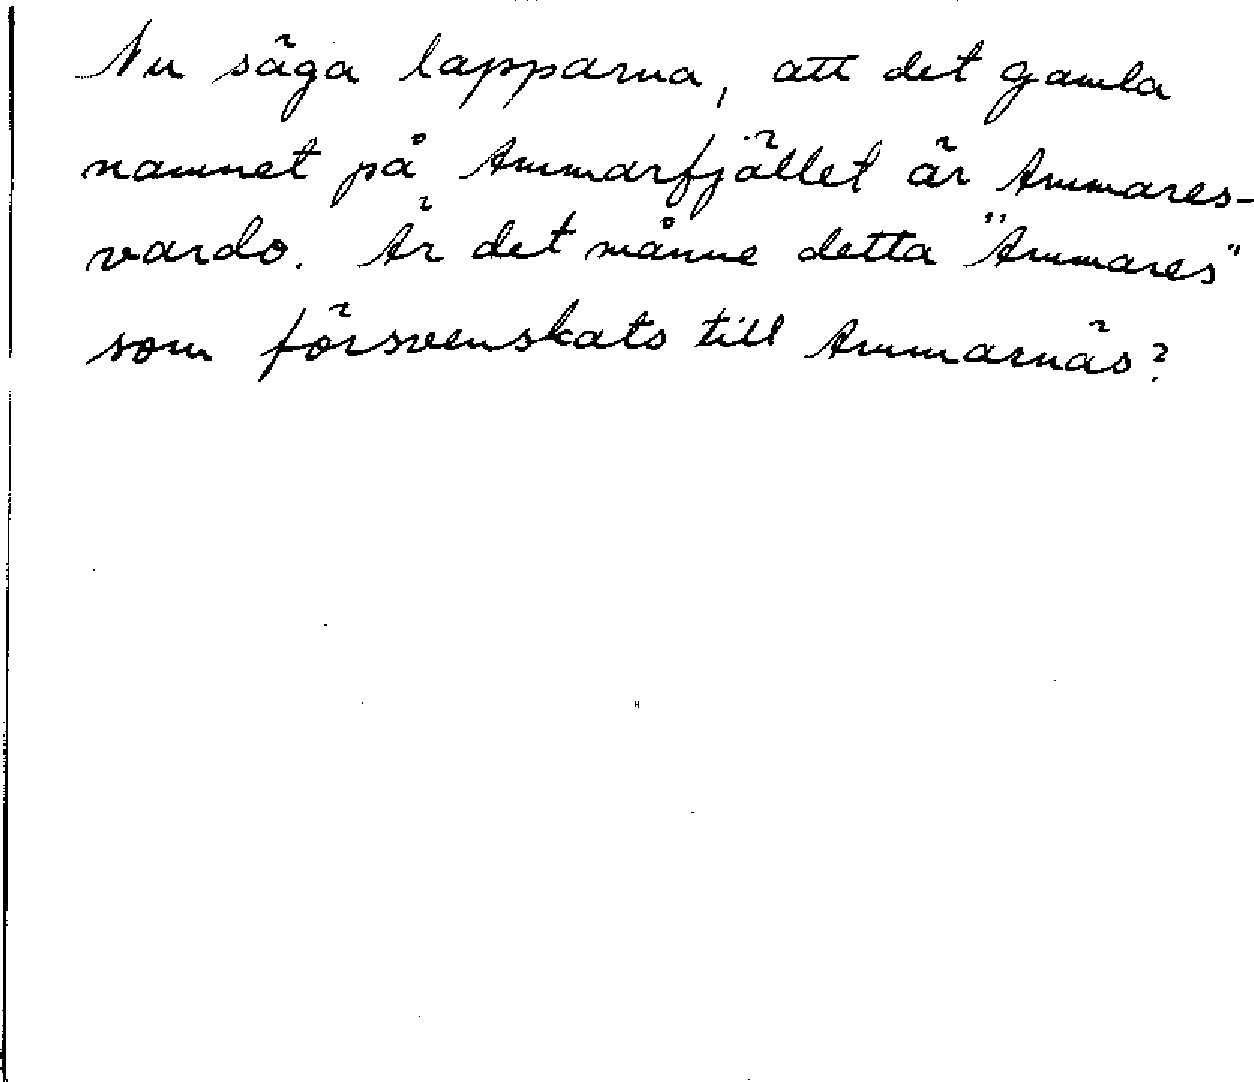 Nu säga lapparna, att det gamla
namnet på Ammarfjället är Ammares-
vardo. Är det månne detta "Ammares"
som försvenskats till Ammarnäs?